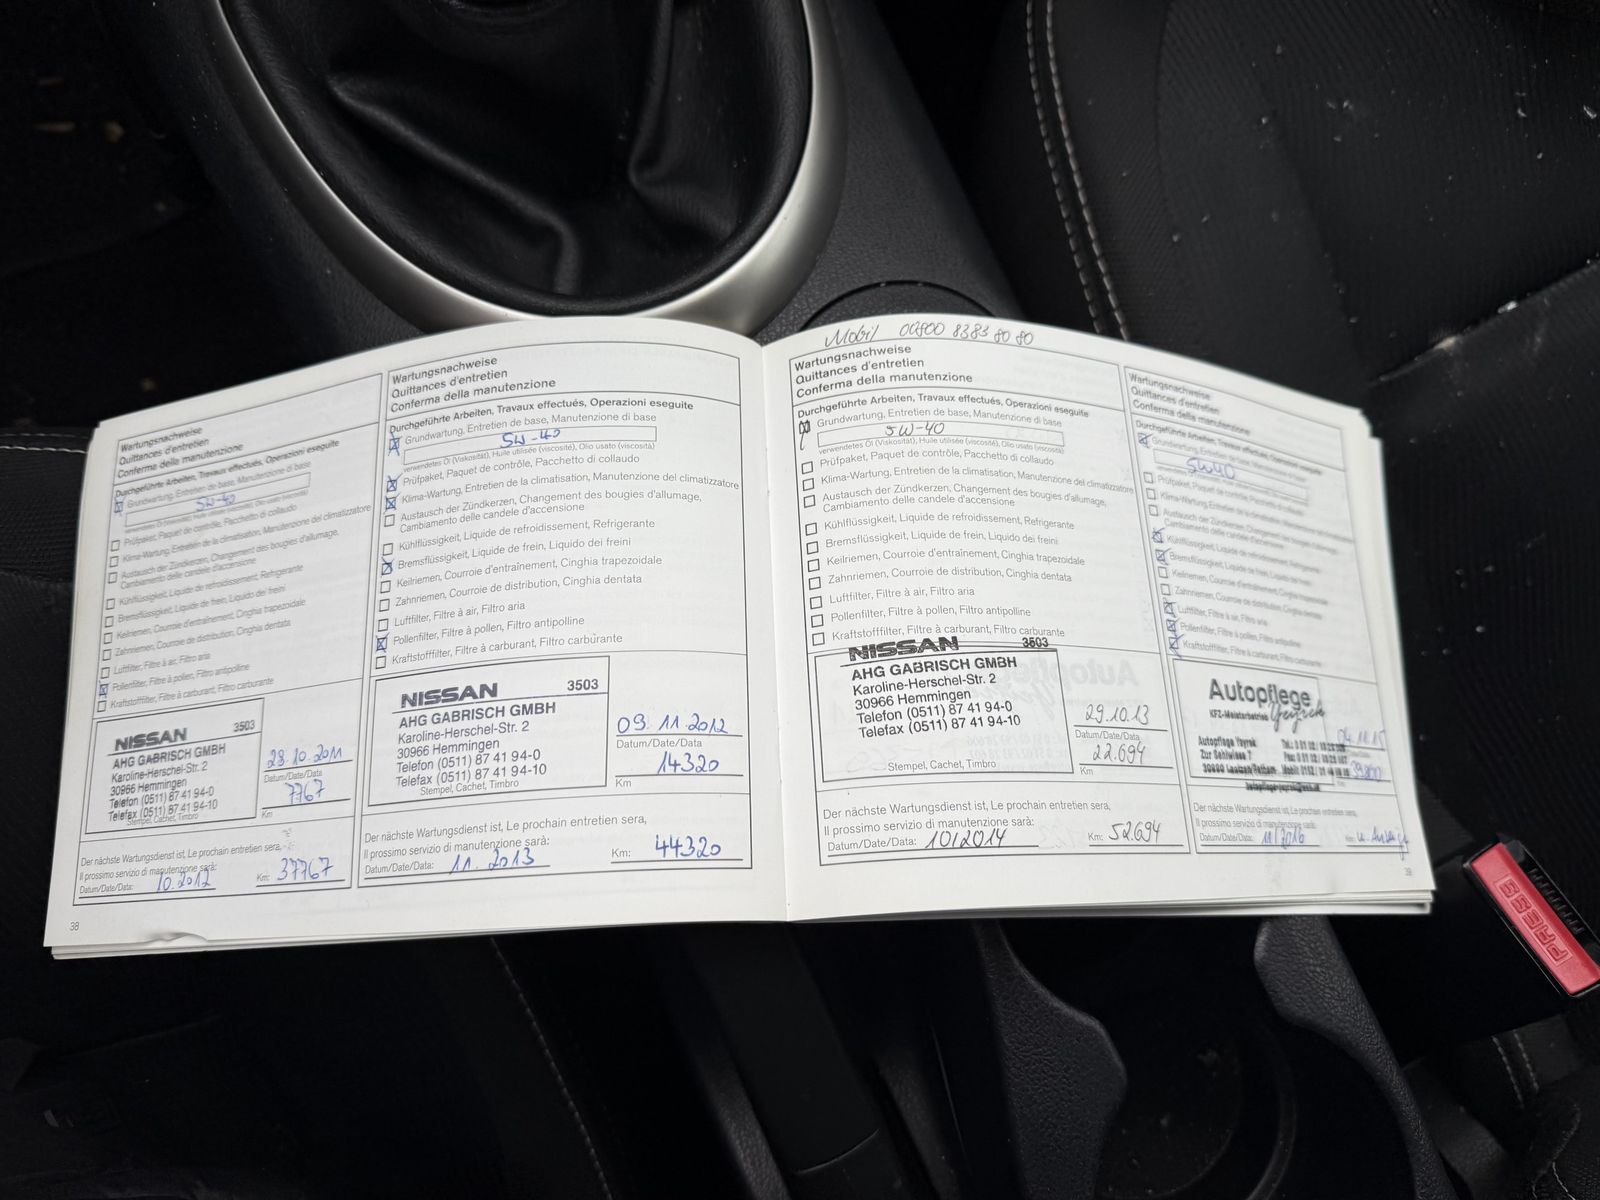 Wartungsnachweise
Quittances d'entretien
Conferma della manutenzione
Durchgeführte Arbeiten, Travaux effectués, Operazioni eseguite
Grundwartung, Entretien de base, Manutenzione di base
5W-40
verwendetes Öl (Viskosität), Huile utilisée (viscosité), Olio usato (viscosità)
Prüfpaket, Paquet de contrôle, Pacchetto di collaudo
Klima-Wartung, Entretien de la climatisation, Manutenzione del climatizzatore
Austausch der Zündkerzen, Changement des bougies d'allumage,
Cambiamento delle candele d'accensione
Kühlflüssigkeit, Liquide de refroidissement, Refrigerante
Bremsflüssigkeit, Liquide de frein, Liquido dei freini
Keilriemen, Courroie d'entraînement, Cinghia trapezoidale
Zahnriemen, Courroie de distribution, Cinghia dentata
Luftfilter, Filtre à air, Filtro aria
Pollenfilter, Filtre à pollen, Filtro antipolline
Kraftstofffilter, Filtre à carburant, Filtro carburante
NISSAN 3503
AHG GABRISCH GMBH
Karoline-Herschel-Str. 2
30966 Hemmingen
Telefon (0511) 87 41 94-0
Telefax (0511) 87 41 94-10
Stempel, Cachet, Timbro
28.10.2011
Datum/Date/Data
7767
Km
Der nächste Wartungsdienst ist, Le prochain entretien sera,
Il prossimo servizio di manutenzione sarà:
Datum/Date/Data: 10.2012 Km: 37767
38
Wartungsnachweise
Quittances d'entretien
Conferma della manutenzione
Durchgeführte Arbeiten, Travaux effectués, Operazioni eseguite
Grundwartung, Entretien de base, Manutenzione di base
5W-40
verwendetes Öl (Viskosität), Huile utilisée (viscosité), Olio usato (viscosità)
Prüfpaket, Paquet de contrôle, Pacchetto di collaudo
Klima-Wartung, Entretien de la climatisation, Manutenzione del climatizzatore
Austausch der Zündkerzen, Changement des bougies d'allumage,
Cambiamento delle candele d'accensione
Kühlflüssigkeit, Liquide de refroidissement, Refrigerante
Bremsflüssigkeit, Liquide de frein, Liquido dei freini
Keilriemen, Courroie d'entraînement, Cinghia trapezoidale
Zahnriemen, Courroie de distribution, Cinghia dentata
Luftfilter, Filtre à air, Filtro aria
Pollenfilter, Filtre à pollen, Filtro antipolline
Kraftstofffilter, Filtre à carburant, Filtro carburante
NISSAN 3503
AHG GABRISCH GMBH
Karoline-Herschel-Str. 2
30966 Hemmingen
Telefon (0511) 87 41 94-0
Telefax (0511) 87 41 94-10
Stempel, Cachet, Timbro
09.11.2012
Datum/Date/Data
14320
Km
Der nächste Wartungsdienst ist, Le prochain entretien sera,
Il prossimo servizio di manutenzione sarà:
Datum/Date/Data: 11.2013 Km: 44320
Mobil 00800 8383 80 80
Wartungsnachweise
Quittances d'entretien
Conferma della manutenzione
Durchgeführte Arbeiten, Travaux effectués, Operazioni eseguite
Grundwartung, Entretien de base, Manutenzione di base
5W-40
verwendetes Öl (Viskosität), Huile utilisée (viscosité), Olio usato (viscosità)
Prüfpaket, Paquet de contrôle, Pacchetto di collaudo
Klima-Wartung, Entretien de la climatisation, Manutenzione del climatizzatore
Austausch der Zündkerzen, Changement des bougies d'allumage,
Cambiamento delle candele d'accensione
Kühlflüssigkeit, Liquide de refroidissement, Refrigerante
Bremsflüssigkeit, Liquide de frein, Liquido dei freini
Keilriemen, Courroie d'entraînement, Cinghia trapezoidale
Zahnriemen, Courroie de distribution, Cinghia dentata
Luftfilter, Filtre à air, Filtro aria
Pollenfilter, Filtre à pollen, Filtro antipolline
Kraftstofffilter, Filtre à carburant, Filtro carburante
NISSAN 3503
AHG GABRISCH GMBH
Karoline-Herschel-Str. 2
30966 Hemmingen
Telefon (0511) 87 41 94-0
Telefax (0511) 87 41 94-10
Stempel, Cachet, Timbro
29.10.13
Datum/Date/Data
22.694
Km
Der nächste Wartungsdienst ist, Le prochain entretien sera,
Il prossimo servizio di manutenzione sarà:
Datum/Date/Data: 10/2014 Km: 52.694
Wartungsnachweise
Quittances d'entretien
Conferma della manutenzione
Durchgeführte Arbeiten, Travaux effectués, Operazioni eseguite
Grundwartung, Entretien de base, Manutenzione di base
5W40
Prüfpaket, Paquet de contrôle, Pacchetto di collaudo
Klima-Wartung, Entretien de la climatisation, Manutenzione del climatizzatore
Austausch der Zündkerzen, Changement des bougies d'allumage,
Cambiamento delle candele d'accensione
Kühlflüssigkeit, Liquide de refroidissement, Refrigerante
Bremsflüssigkeit, Liquide de frein, Liquido dei freini
Keilriemen, Courroie d'entraînement, Cinghia trapezoidale
Zahnriemen, Courroie de distribution, Cinghia dentata
Luftfilter, Filtre à air, Filtro aria
Pollenfilter, Filtre à pollen, Filtro antipolline
Kraftstofffilter, Filtre à carburant, Filtro carburante
Autopflege
KFZ-Meisterbetrieb
Autopflege
04.11.15
Der nächste Wartungsdienst ist, Le prochain entretien sera,
Il prossimo servizio di manutenzione sarà:
Datum/Date/Data: 11/2016 Km:
39
PRESS